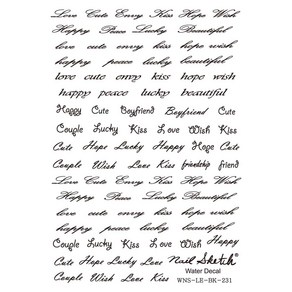 Love Cute Envy Kiss Hope Wish
Happy Peace Lucky Beautiful
love cute envy kiss hope wish
happy peace lucky beautiful
love cute envy kiss hope wish
happy peace lucky beautiful
Happy Cute Boyfriend Boyfriend Cute
Couple Lucky Kiss Love Wish Kiss
Cute Hope Lucky Happy Cute Hope
Couple Wish Love Kiss friendship friend
Love Cute Envy Kiss Hope Wish
Happy Peace Lucky Beautiful
Love cute envy kiss hope wish
happy peace lucky beautiful
Couple Lucky Kiss Love Wish Happy
Cute Hope Lucky Love Nail Sketch®
Couple Wish Love Kiss Water Decal
WNS-LE-BK-231